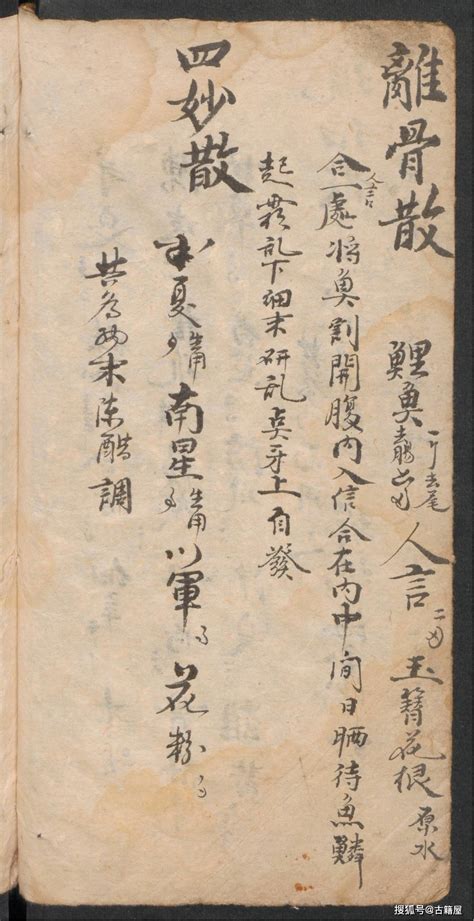 離骨散
鯉魚 一斤 去尾 去腸 人言 二 玉簪花根 原水
合一處將魚割開腹內入信合在內中间日晒待魚鱗
人言
起霜乱下細末研乱点牙上自發
四妙散
半夏 生用 南星 生用 川軍 花粉
共為細末陈醋調
搜狐号@古籍屋